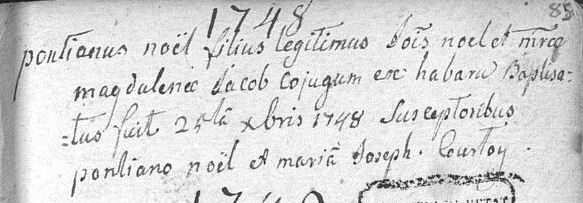 1748
85
pontianus noël filius legitimus Jois noel et mræ
magdalenæ Jacob Cojugum ex habaru Baptisa-
=tus fuit 25tâ xbris 1748 Susceptoribus
pontiano noël et mariâ Joseph. Courtoy.